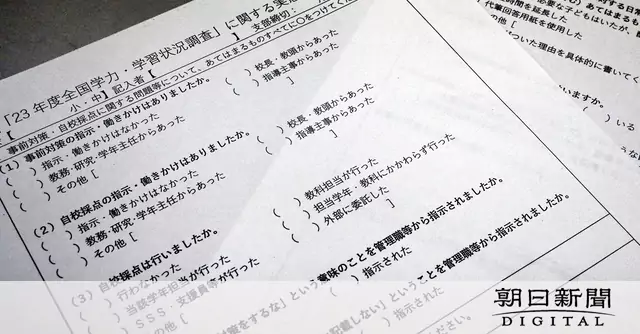 「23年度全国学力・学習状況調査」に関する実
小・中】記入者【 】支部締切：
事前対策・自校採点に関する問題等について、あてはまるものすべてに○をつけてく
(1) 事前対策の指示・働きかけはありましたか。
( ) 指示・働きかけはなかった ( ) 校長・教頭からあった
( ) 教務・研究・学年主任からあった ( ) 指導主事からあった
( ) その他 [ ]
(2) 自校採点の指示・働きかけはありましたか。
( ) 指示・働きかけはなかった ( ) 校長・教頭からあった
( ) 教務・研究・学年主任からあった ( ) 指導主事からあった
( ) その他 [ ]
(3) 自校採点は行いましたか。
( ) 行わなかった ( ) 教科担当が行った
( ) 当該学年担当が行った ( ) 担当学年・教科にかかわらず行った
( ) SSS、支援員等が行った ( ) 外部に委託した
( ) その他 [ ]
対策をするな」という意味のことを管理職等から指示されましたか。
( ) 指示された
ということを管理職等から指示されましたか。
指示された
時間を延長した
代筆回答用紙を使用した
その他 [
った理由を具体的に書いて
いますか。
( ) いる
朝日新聞
DIGITAL